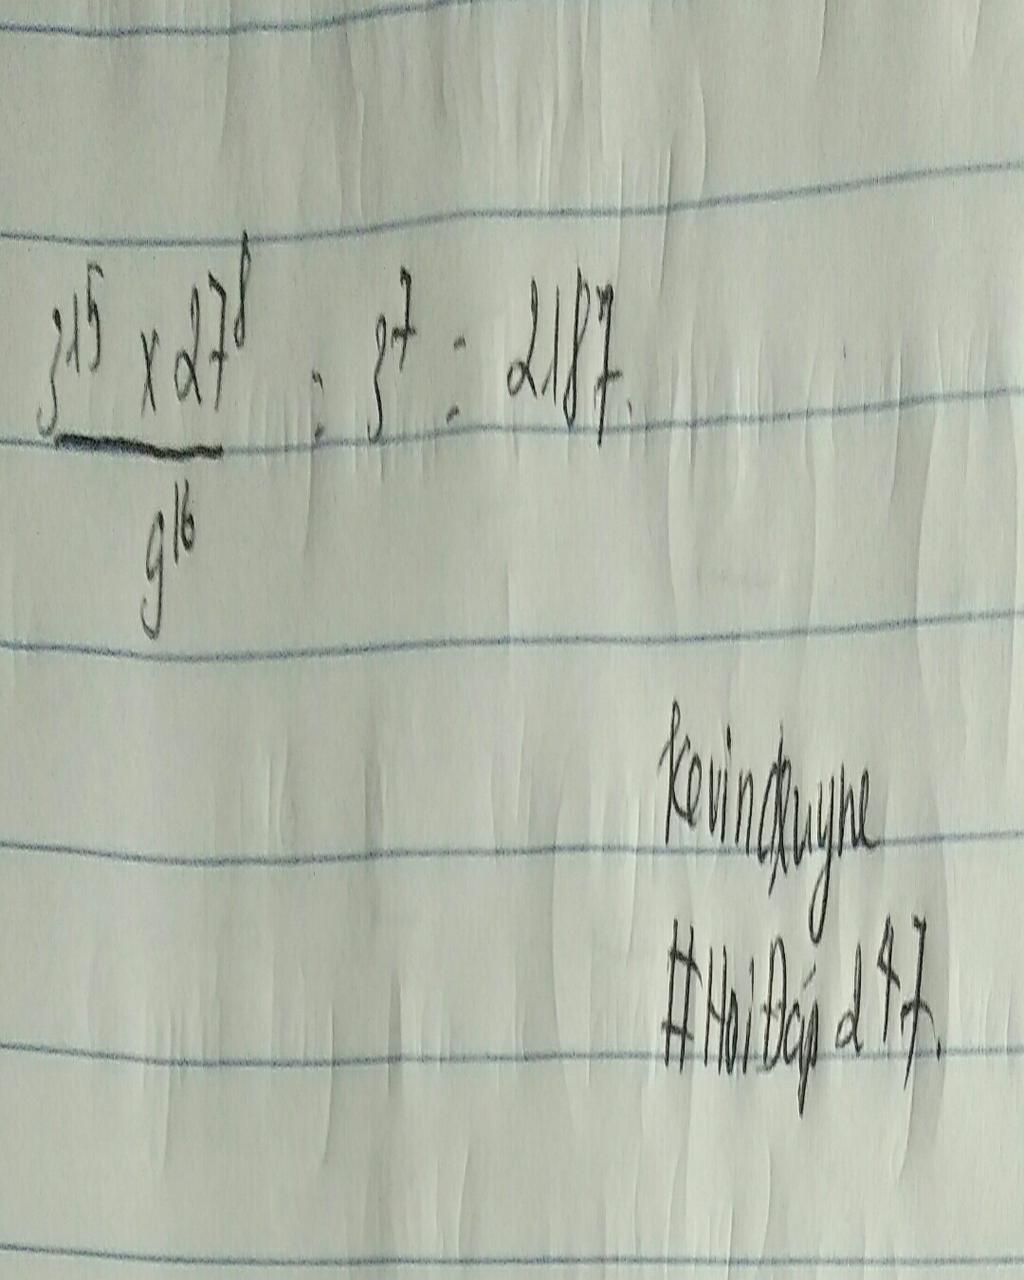 3¹⁵ x 27⁸
9¹⁶
= 3⁷ = 2187.
kevinquyne
#HoiĐáp247.